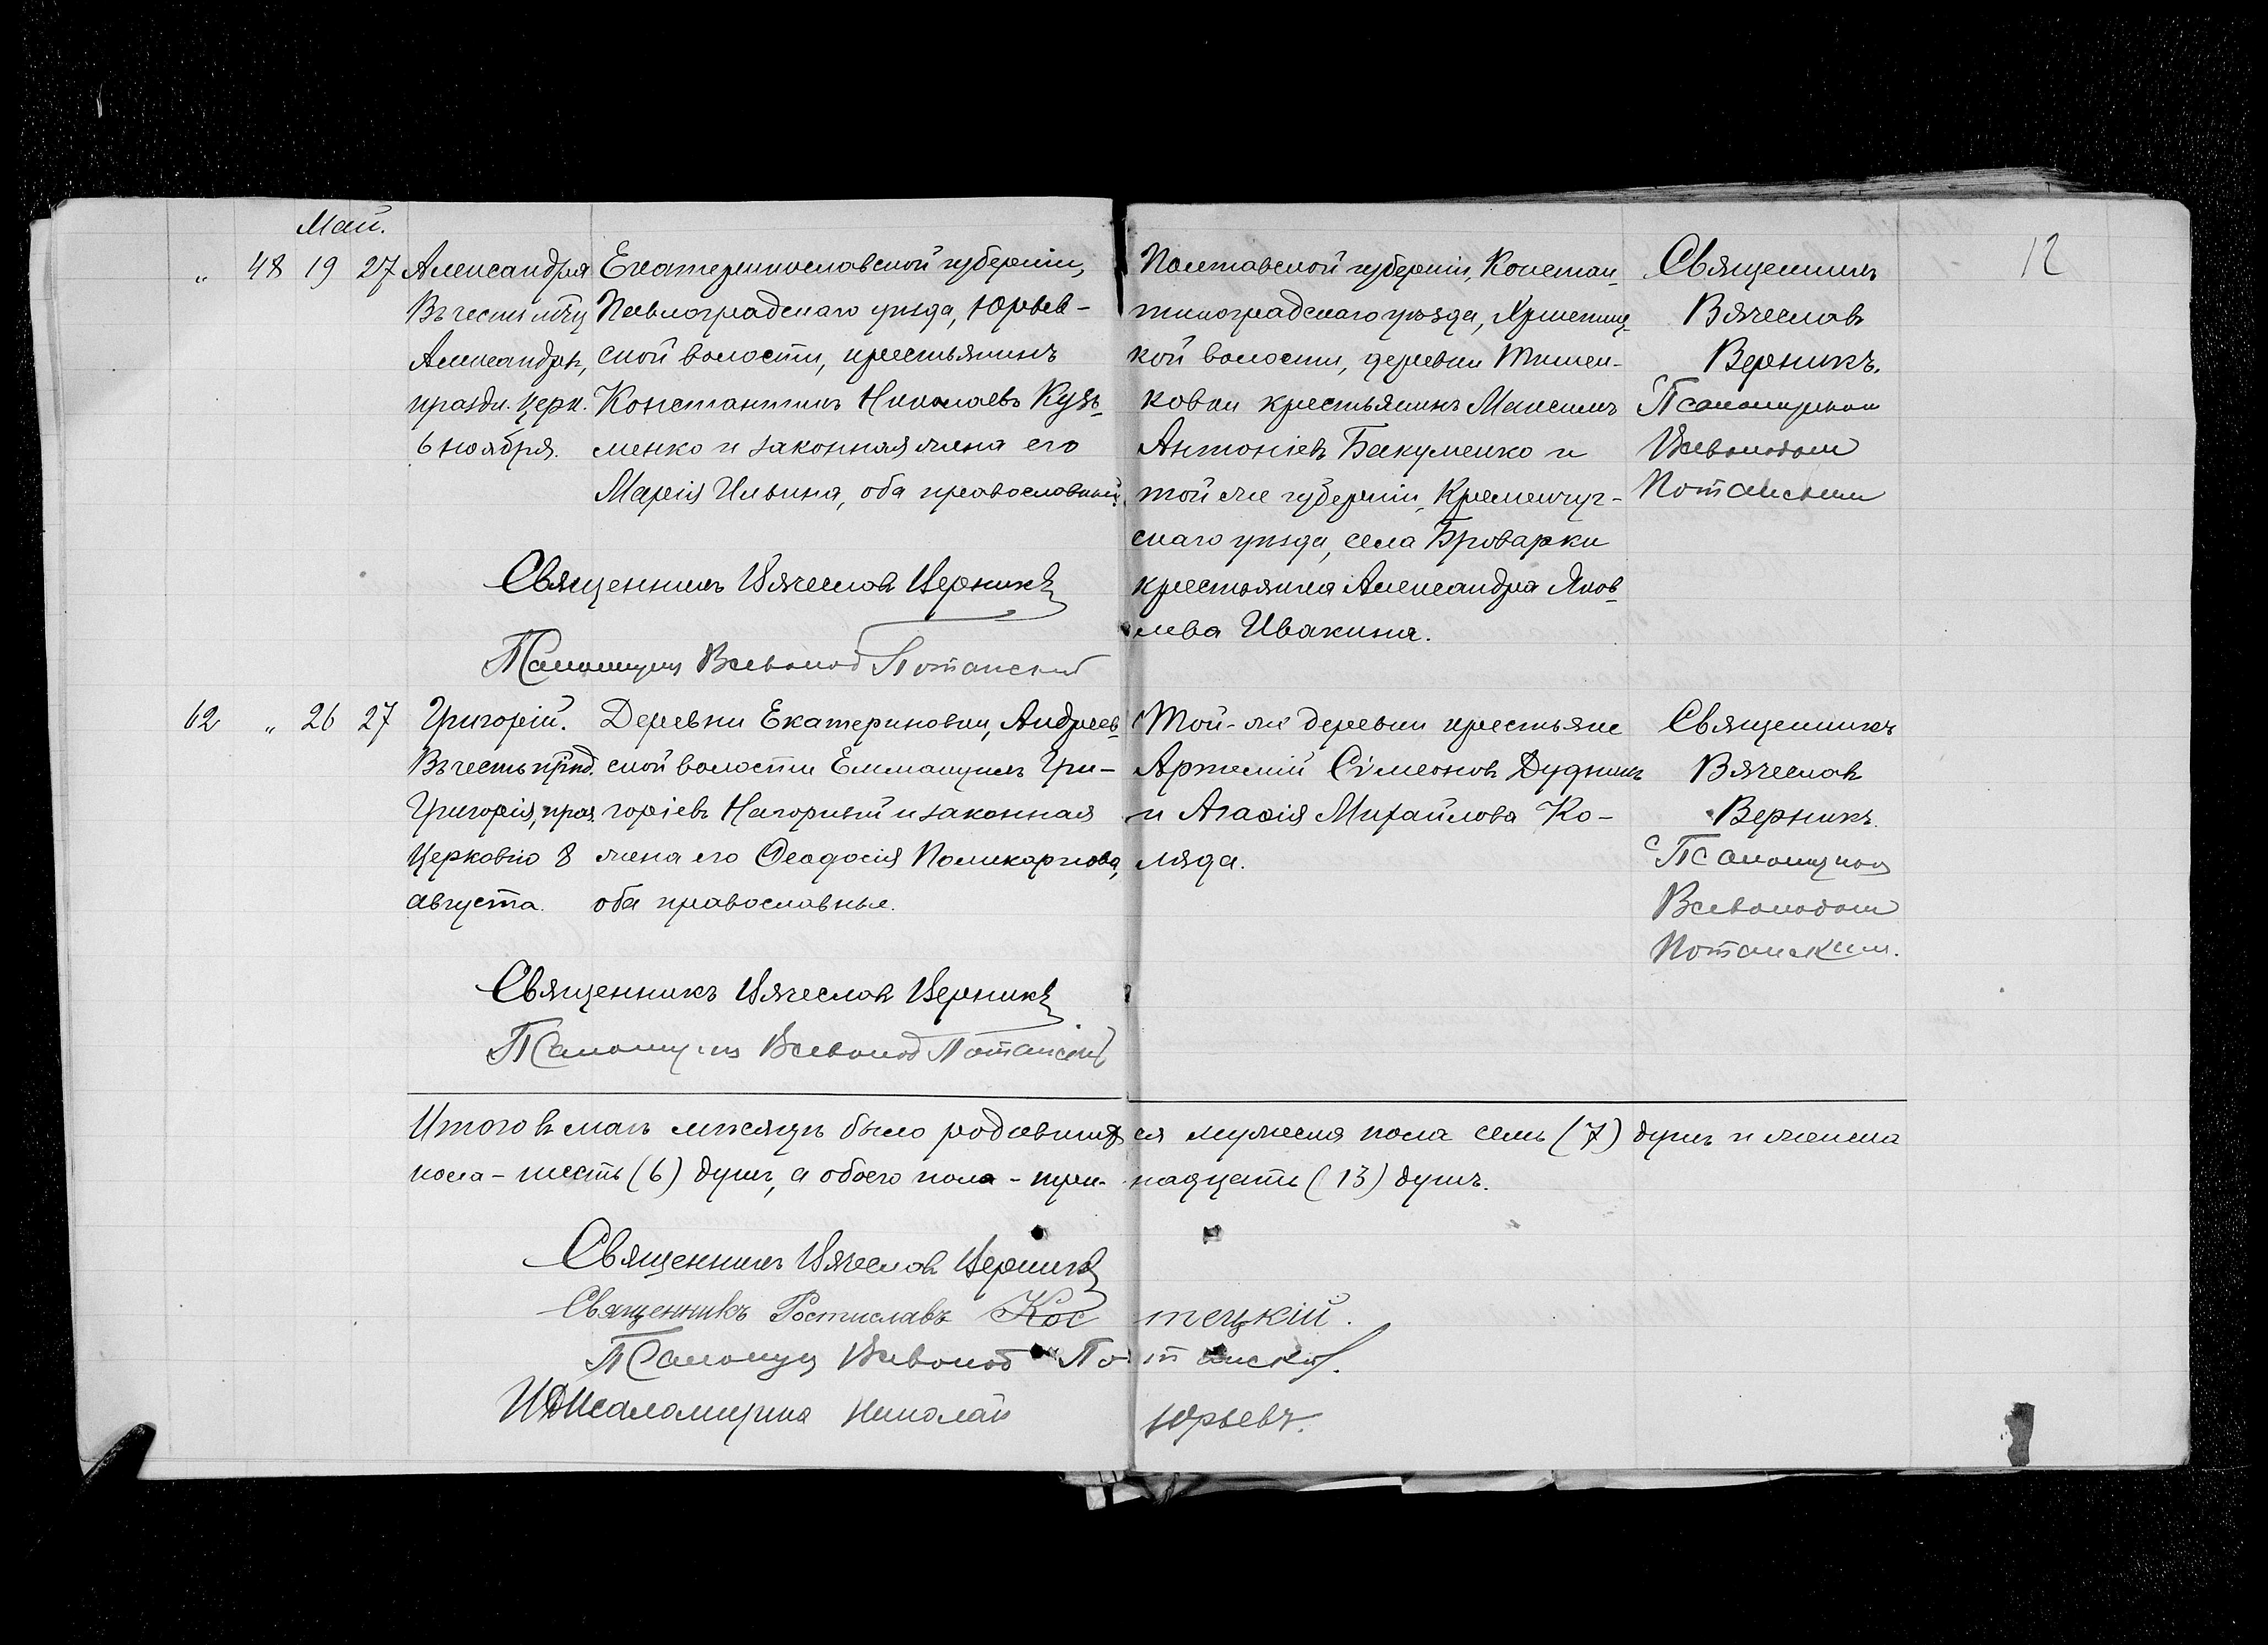 Май.
12
„ 48 19 27 Александра
Въ честь мчц.
Александры,
праздн. церк.
6 ноября.
Екатеринославской губерніи,
Павлоградскаго уѣзда, Юрьев-
ской волости, крестьянинъ
Константинъ Николаевъ Кузь-
менко и законная жена его
Марія Ильина, оба православные.
Священникъ Вячеславъ Верникъ
Псаломщикъ Всеволод Потанскій
Полтавской губерніи, Констан-
тиноградскаго уѣзда,
кой волости, деревни Тишен-
ковки крестьянинъ Максимъ
Антоніевъ Бакуменко и
той же губерніи, Кременчуг-
скаго уѣзда, села Броварки
крестьянка Александра Яков-
лева Ивакина.
Священникъ
Вячеславъ
Верникъ.
Псаломщиком
Всеволодом
Потанским
62 „ 26 27 Григорій.
Въ честь прпд.
Григорія, праз.
Церковію 8
августа.
Деревни Екатериновки, Андреев-
ской волости Еммануилъ Гри-
горіевъ Нагорный и законная
жена его Ѳеодосія Поликарпова,
оба православные.
Священникъ Вячеславъ Верникъ
Псаломщикъ Всеволод Потанскій
Той-же деревни крестьяне
Артемій Сѵмеоновъ Дудникъ
и Агаѳія Михайлова Ко-
ляда.
Священникъ
Вячеславъ
Верникъ.
Псаломщиком
Всеволодом
Потанским.
Итого въ маѣ мѣсяцѣ было родившихся мужеска пола семь (7) душъ и женска
пола - шесть (6) душъ, а обоего пола - три- надцать (13) душъ.
Священникъ Вячеславъ Верникъ
Священникъ Ростиславъ Кос тецкій.
Псаломщикъ Всеволод По танскій.
И Д Псаломщика Николай Юрьевъ.